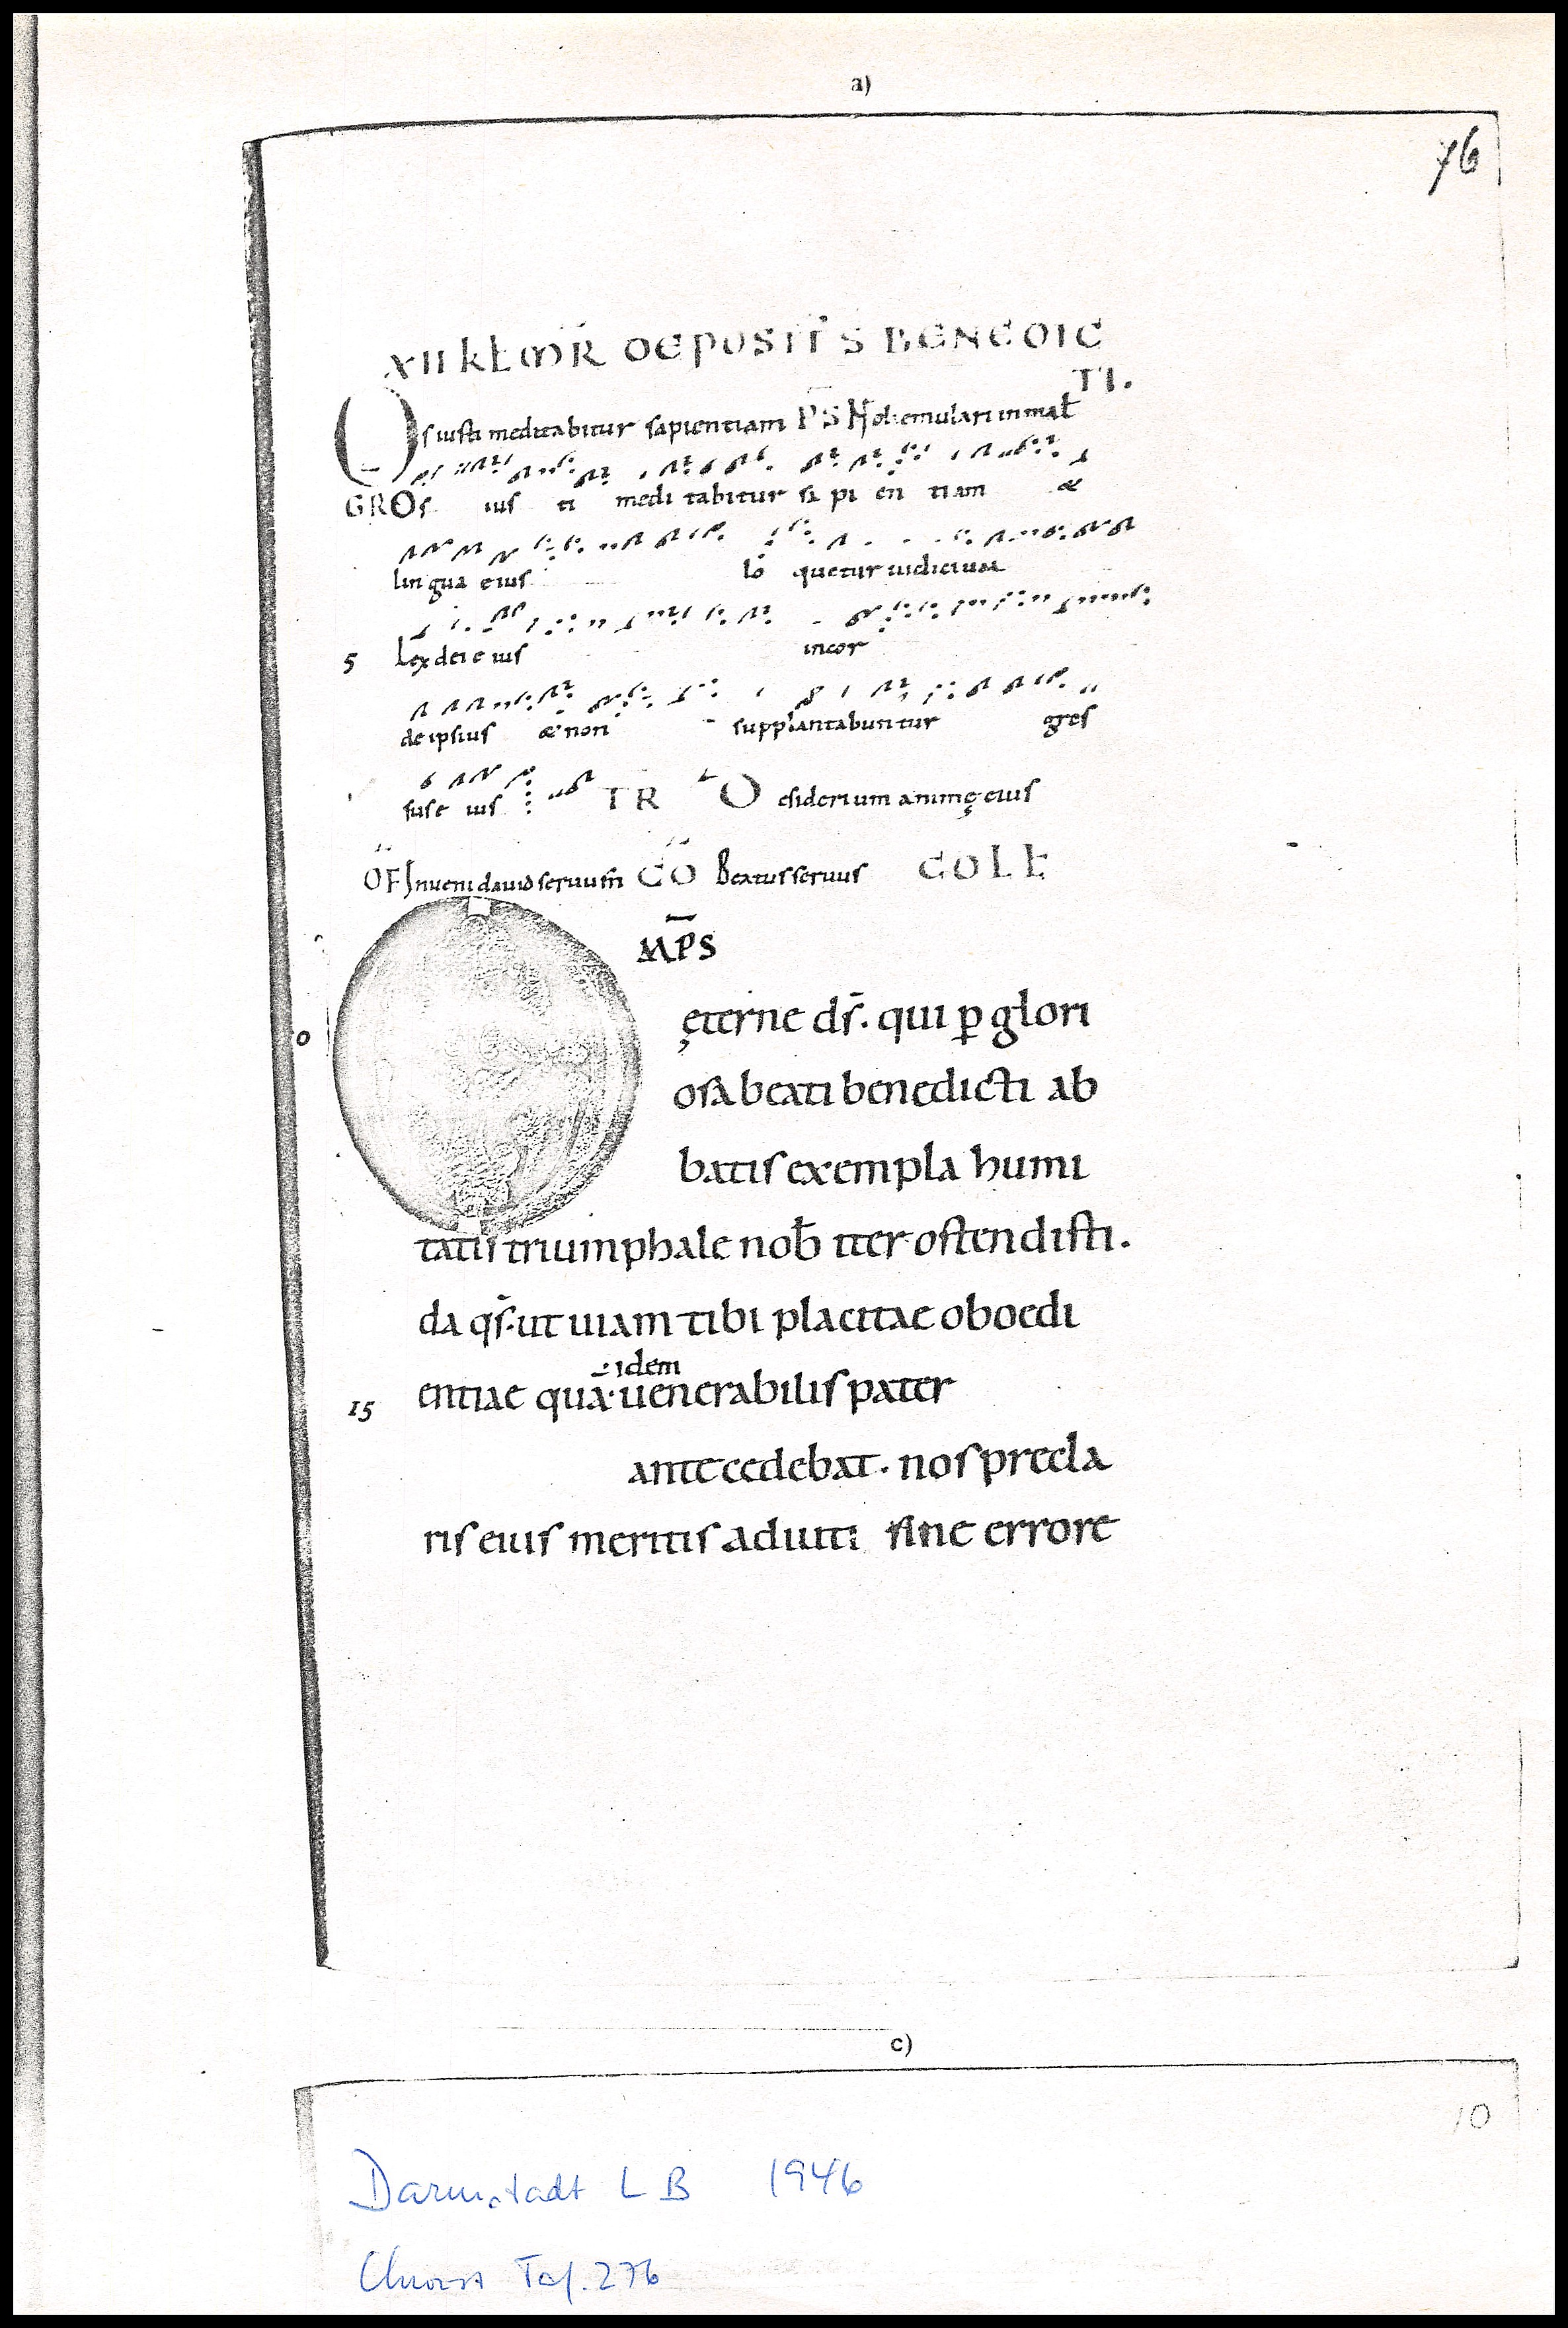 a)
76
XII KL̄ M̄R DEPOSITĪS BENEDIC
TI.
Os iusti meditabitur sapientiam P̄S Noli emulari in mal̄
GR Os ius ti medi tabitur sa pi en tiam &
lingua eius lo quetur iudicium
5 Lex dei e ius in cor
de ipsius & non supplantabuntur gres
sus e ius TR Desiderium animę eius
OF Inueni dauid seruum CO Beatus seruus COLL
MP̄S
ęterne ds̄. qui p glori
osa beati benedicti ab
batis exempla humi
tatis triumphale nob̄ iter ostendisti.
da qs̄. ut uiam tibi placitae oboedi
idem
15 entiae qua. uenerabilis pater
antecedebat. nos precla
ris eius meritis adiuti sine errore
c)
10
Darmstadt LB 1946
Taf. 276